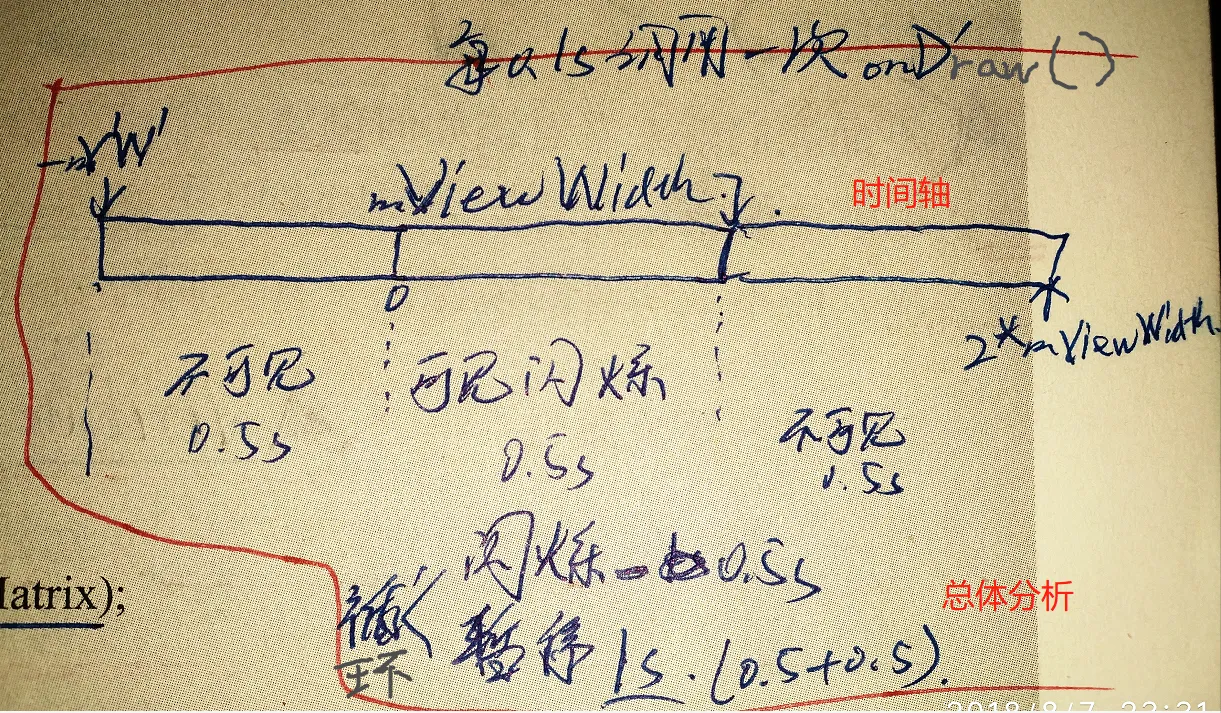 每0.1s调用一次onDraw()
-mVW
mViewWidth.
时间轴
0
2*mViewWidth.
不可见
可见闪烁
0.5s
0.5s
不可见
0.5s
闪烁 0.5s
Matrix);
总体分析
循环
暂停 1s.(0.5+0.5).
2018/8/7 22:31